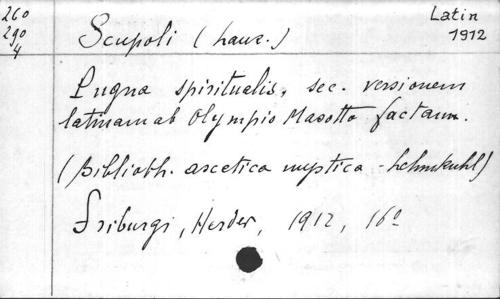 260
290
4
Latin
1912
Scupoli (Laur.)
Pugna spiritualis, sec. versionem
latinam ab Olympio Masotto factam.
(Biblioth. ascetica mystica - Lehmkuhl)
Friburgi, Herder, 1912, 16º